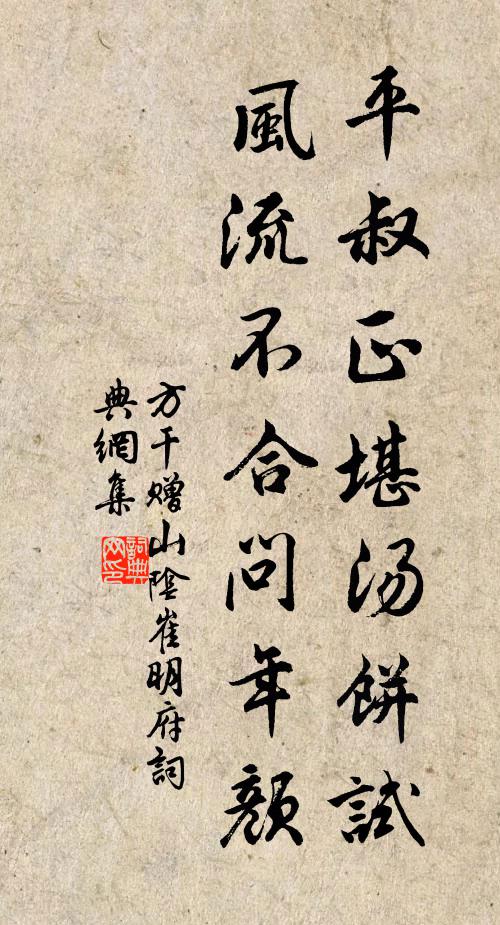 平叔正堪湯餅試
風流不合問年顏
方干贈山陰崔明府詞
典網集
詞典網印